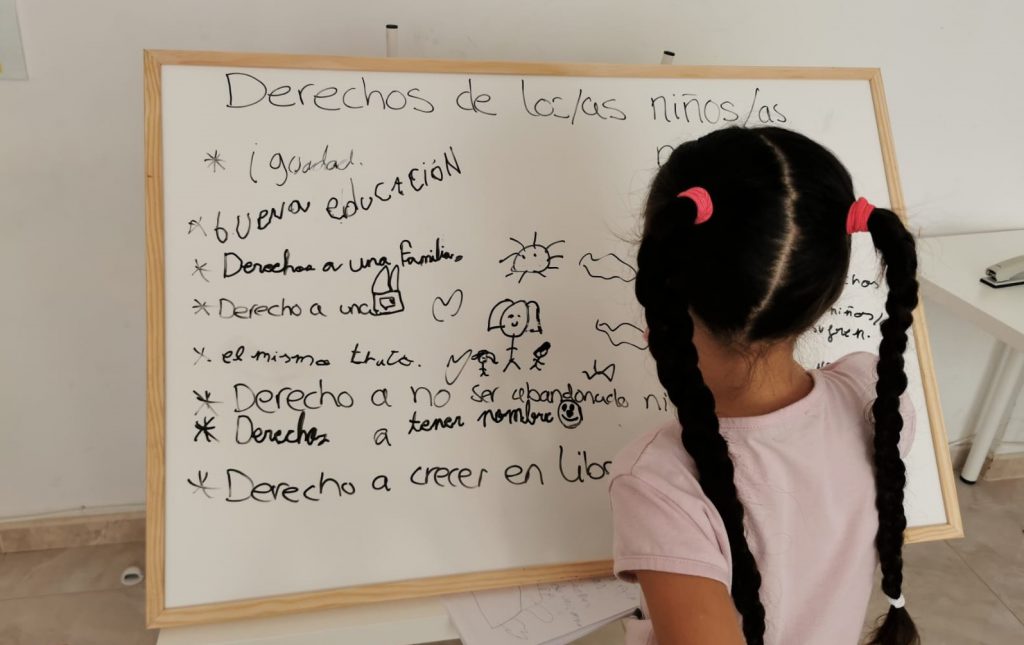 Derechos de los/as niños/as
* igualdad.
* buena educación
* Derechos a una familia.
* Derecho a una
* el mismo trato.
* Derecho a no ser abandonado ni
* Derechos a tener nombre
* Derecho a crecer en
niños/
sufren.